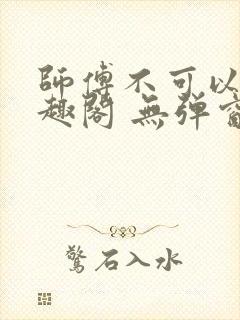 師傅不可以
趣閣 無彈窗
驚石入水